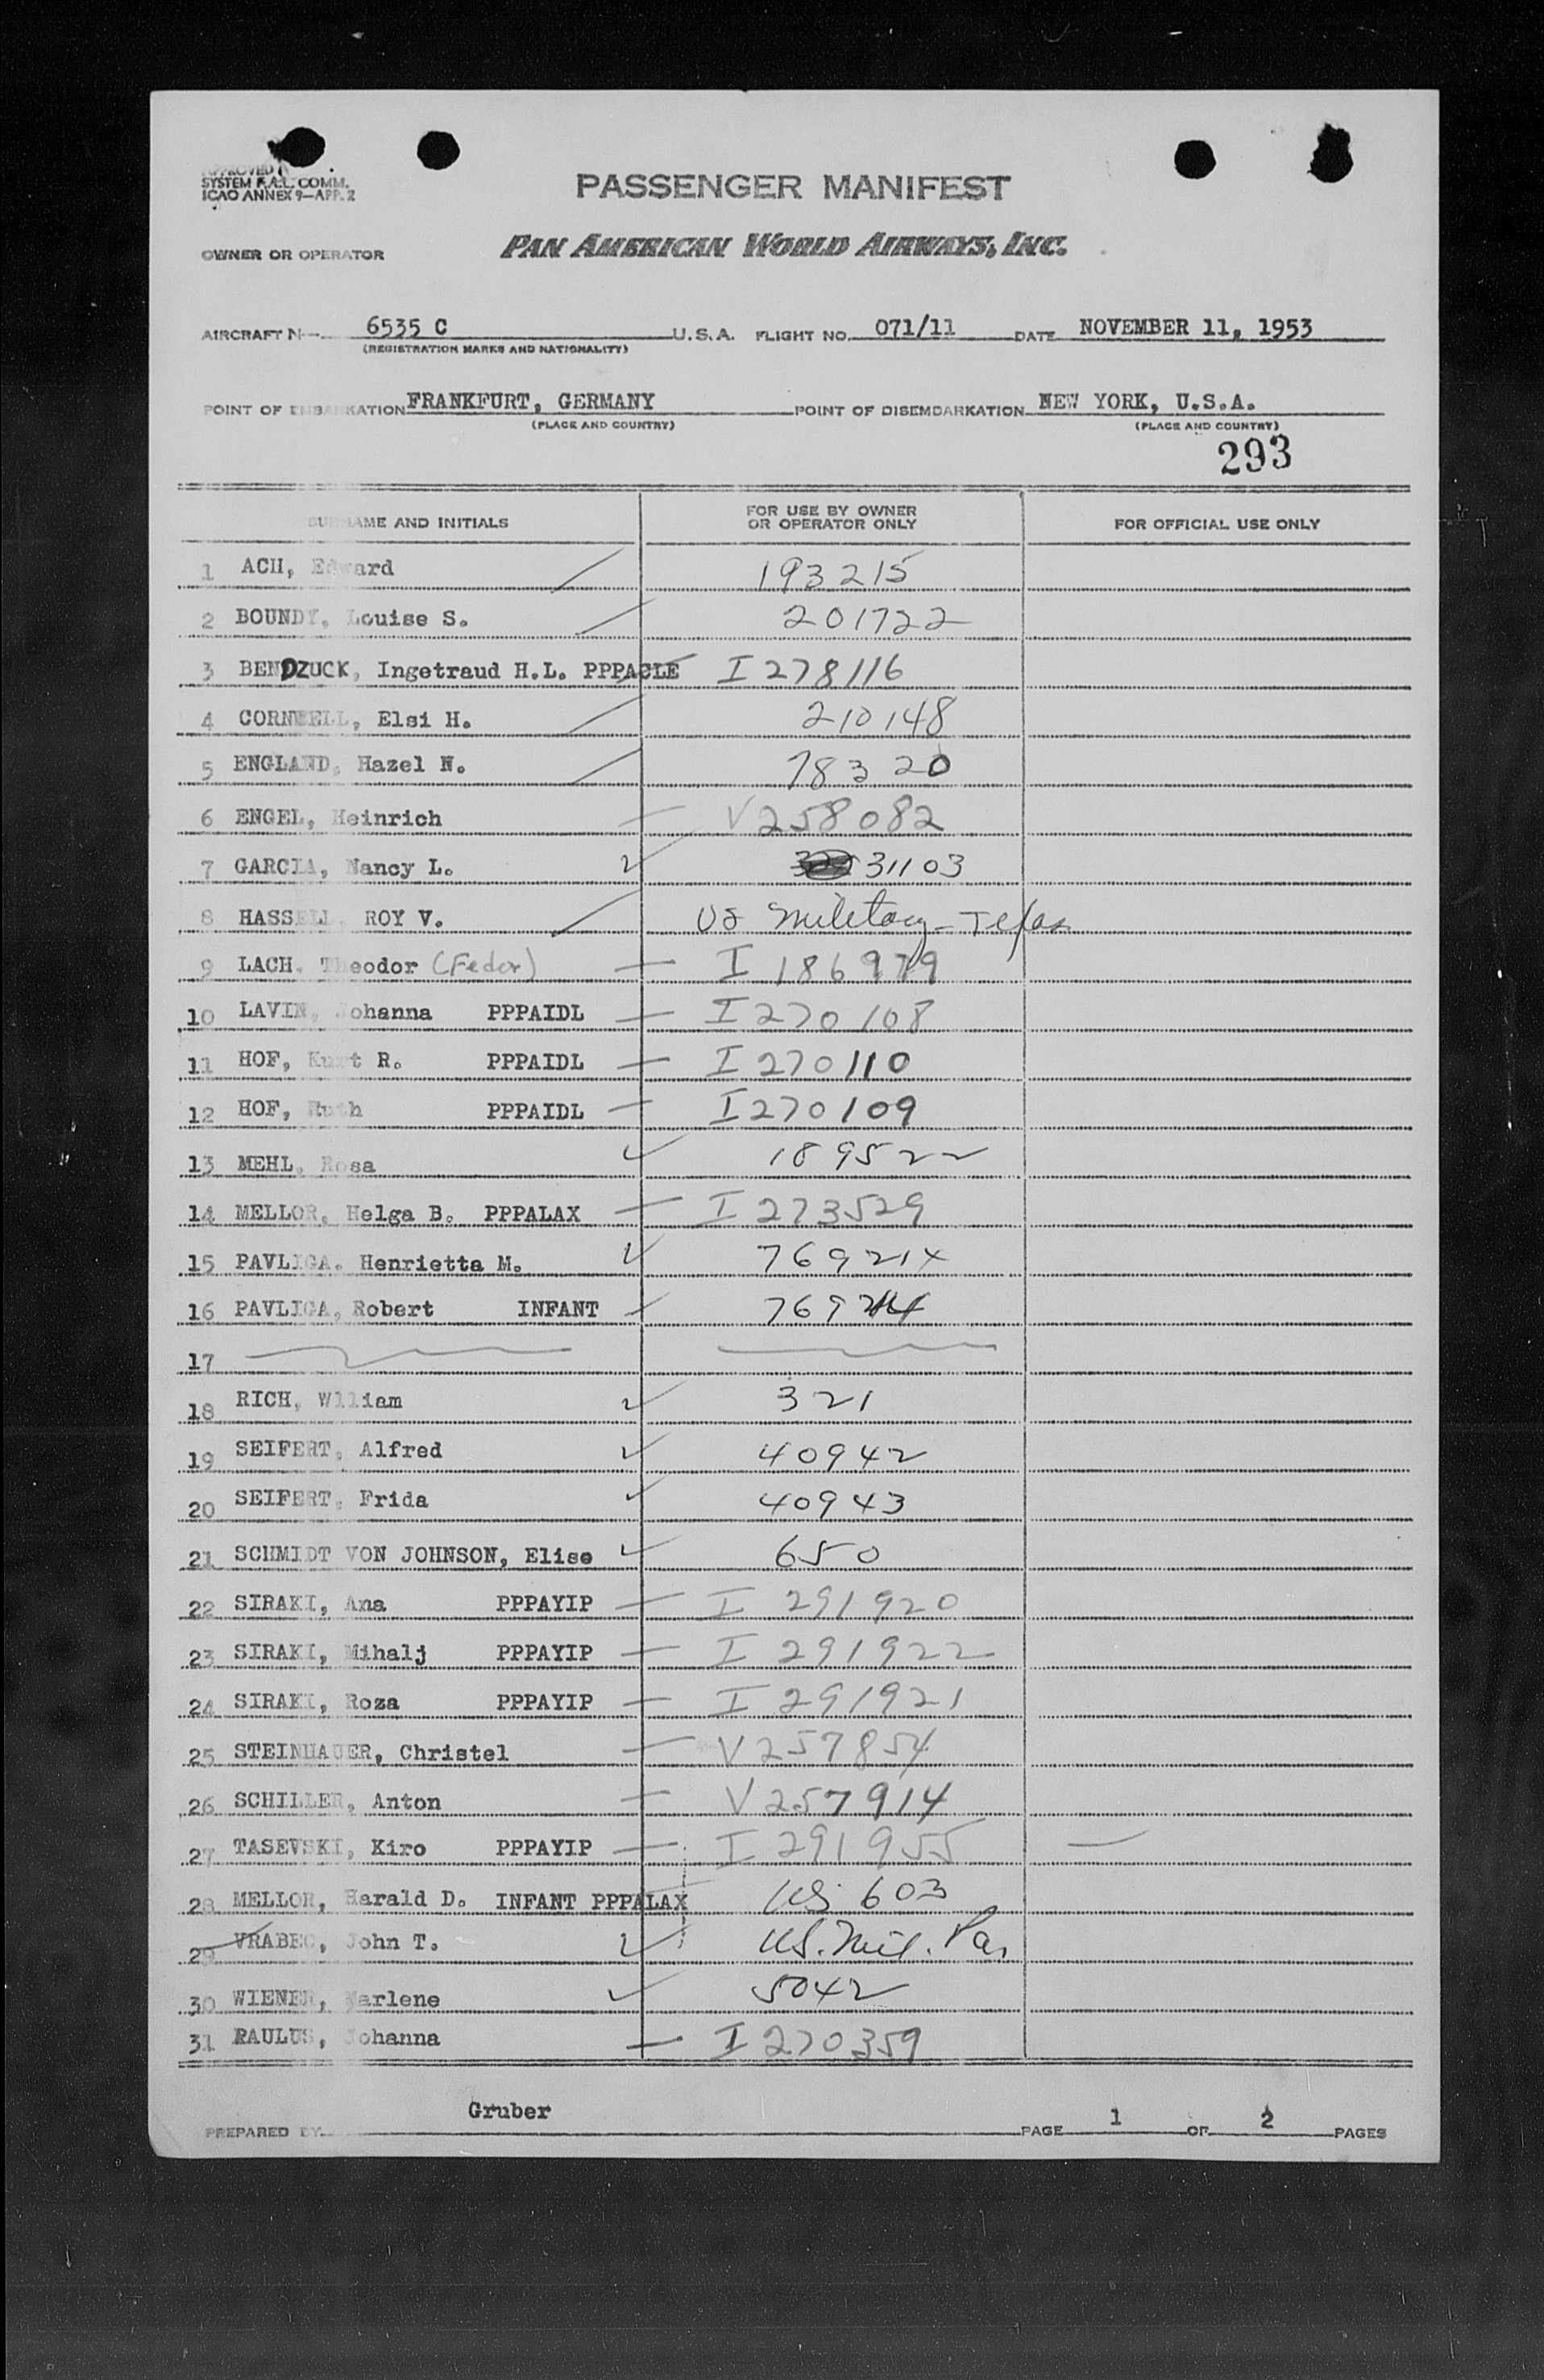 APPROVED
SYSTEM F.A.L. COMM.
ICAO ANNEX 9—APP. 2
PASSENGER MANIFEST
OWNER OR OPERATOR PAN AMERICAN WORLD AIRWAYS, INC.
AIRCRAFT N— 6535 C U.S.A. FLIGHT NO. 071/11 DATE NOVEMBER 11, 1953
(REGISTRATION MARKS AND NATIONALITY)
POINT OF EMBARKATION FRANKFURT, GERMANY POINT OF DISEMBARKATION NEW YORK, U.S.A.
(PLACE AND COUNTRY) (PLACE AND COUNTRY)
293
SURNAME AND INITIALS FOR USE BY OWNER OR OPERATOR ONLY FOR OFFICIAL USE ONLY
1 ACH, Edward 193215
2 BOUNDY, Louise S. 201722
3 BENDZUCK, Ingetraud H.L. PPPACLE I 278116
4 CORNWELL, Elsi H. 210148
5 ENGLAND, Hazel N. 78320
6 ENGEL, Heinrich V 258082
7 GARCIA, Nancy L. 31103
8 HASSELL, ROY V. US Military - Texas
9 LACH, Theodor (Fedor) I 186979
10 LAVIN, Johanna PPPAIDL I 270108
11 HOF, Kurt R. PPPAIDL I 270110
12 HOF, Ruth PPPAIDL I 270109
13 MEHL, Rosa 189522
14 MELLOR, Helga B. PPPALAX I 273529
15 PAVLIGA. Henrietta M. 769214
16 PAVLIGA, Robert INFANT 769214
17
18 RICH, Wlliam 321
19 SEIFERT, Alfred 40942
20 SEIFERT, Frida 40943
21 SCHMIDT VON JOHNSON, Elise 650
22 SIRAKI, Ana PPPAYIP I 291920
23 SIRAKI, Mihalj PPPAYIP I 291922
24 SIRAKI, Roza PPPAYIP I 291921
25 STEINHAUER, Christel V 257854
26 SCHILLER, Anton V 257914
27 TASEVSKI, Kiro PPPAYIP I 291955
28 MELLOR, Harald D. INFANT PPPALAX US 603
29 VRABEC, John T. US. Mil. Pa.
30 WIENER, Marlene 5042
31 RAULUS, Johanna I 270359
PREPARED BY Gruber PAGE 1 OF 2 PAGES